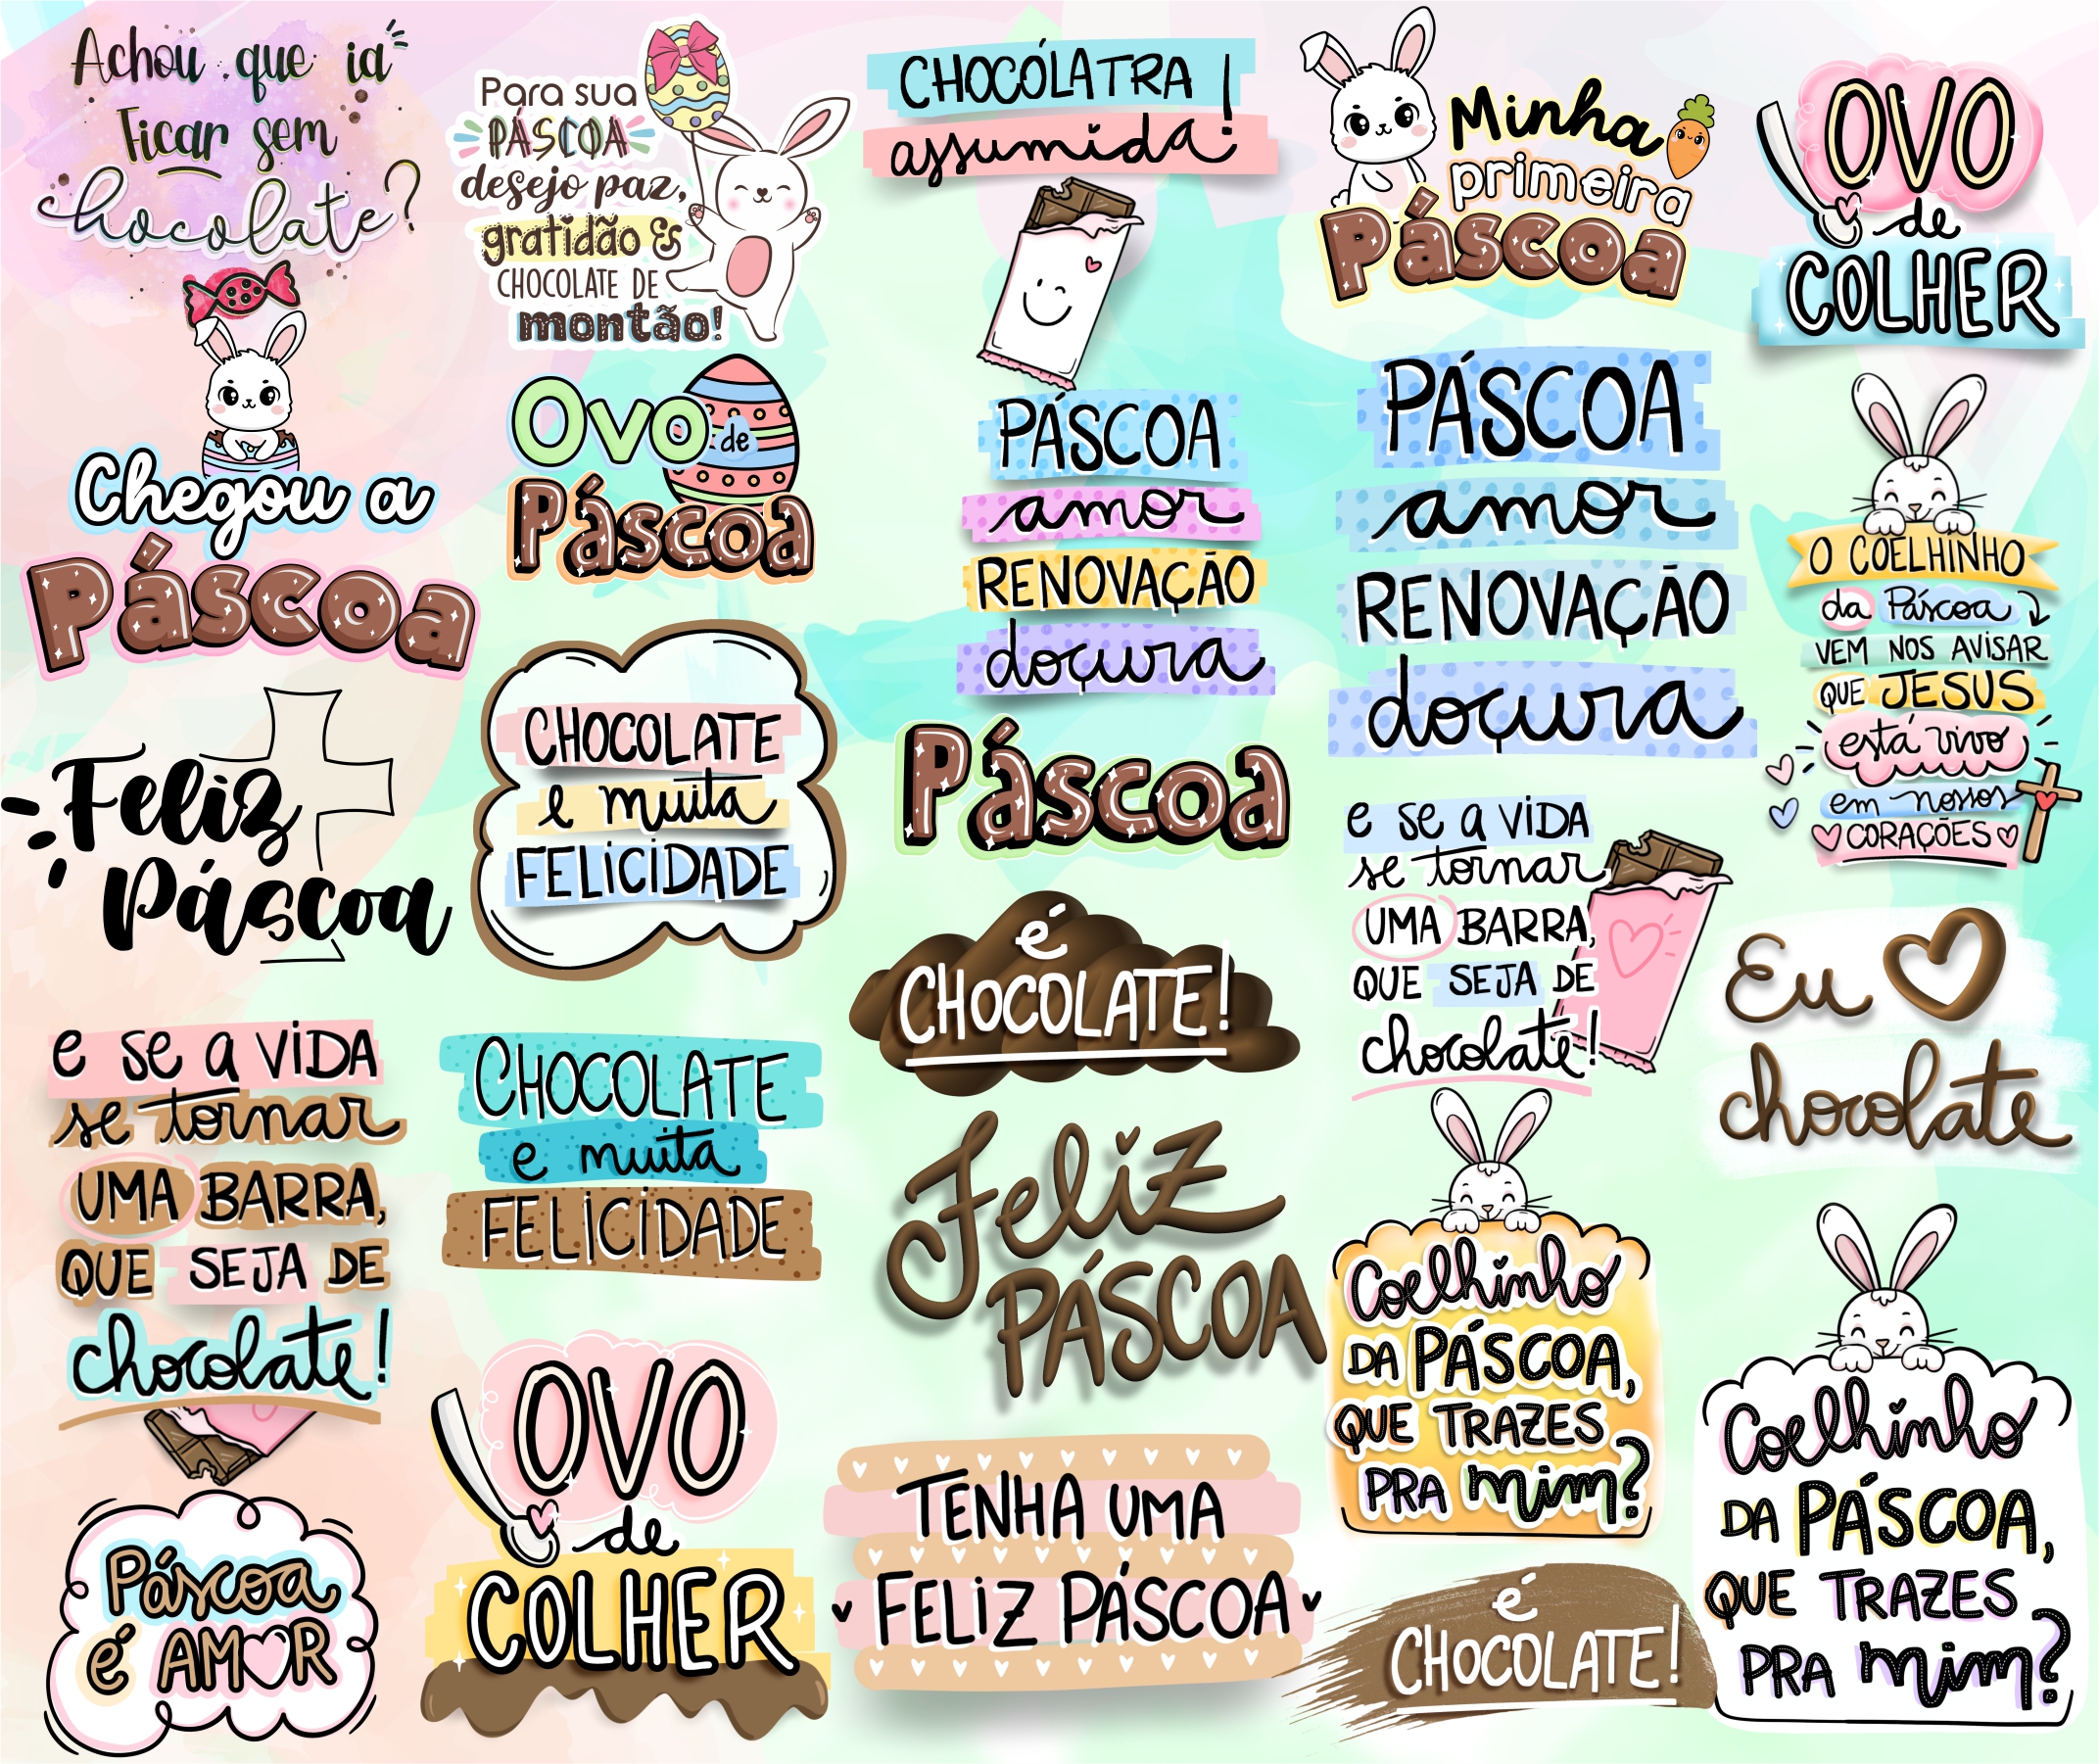 Achou que ia
ficar sem
chocolate?
Chegou a
Páscoa
Feliz
Páscoa
e se a ViDA
se tornar
UMA BARRA,
QUE SEJA DE
chocolate!
Páscoa
é AMOR
Para sua
PÁSCOA
desejo paz,
gratidão &
CHOCOLATE DE
montão!
Ovo de
Páscoa
CHOCOLATE
e muita
FELiCiDADE
CHOCOLATE
e muita
FELiCiDADE
OVO
de
COLHER
CHOCÓLATRA
assumida!
PÁSCOA
amor
RENOVAÇÃO
doçura
Páscoa
é
CHOCOLATE!
Feliz
PÁSCOA
TENHA UMA
FELiZ PÁSCOA
Minha
primeira
Páscoa
PÁSCOA
amor
RENOVAÇÃO
doçura
e se a ViDA
se tornar
UMA BARRA,
QUE SEJA DE
chocolate!
Coelhinho
DA PÁSCOA,
QUE TRAZES
PRA mim?
é
CHOCOLATE!
OVO
de
COLHER
O COELHINHO
da Páscoa
VEM NOS AVISAR
QUE JESUS
está vivo
em nossos
CORAÇÕES
Eu
chocolate
Coelhinho
DA PÁSCOA,
QUE TRAZES
PRA mim?